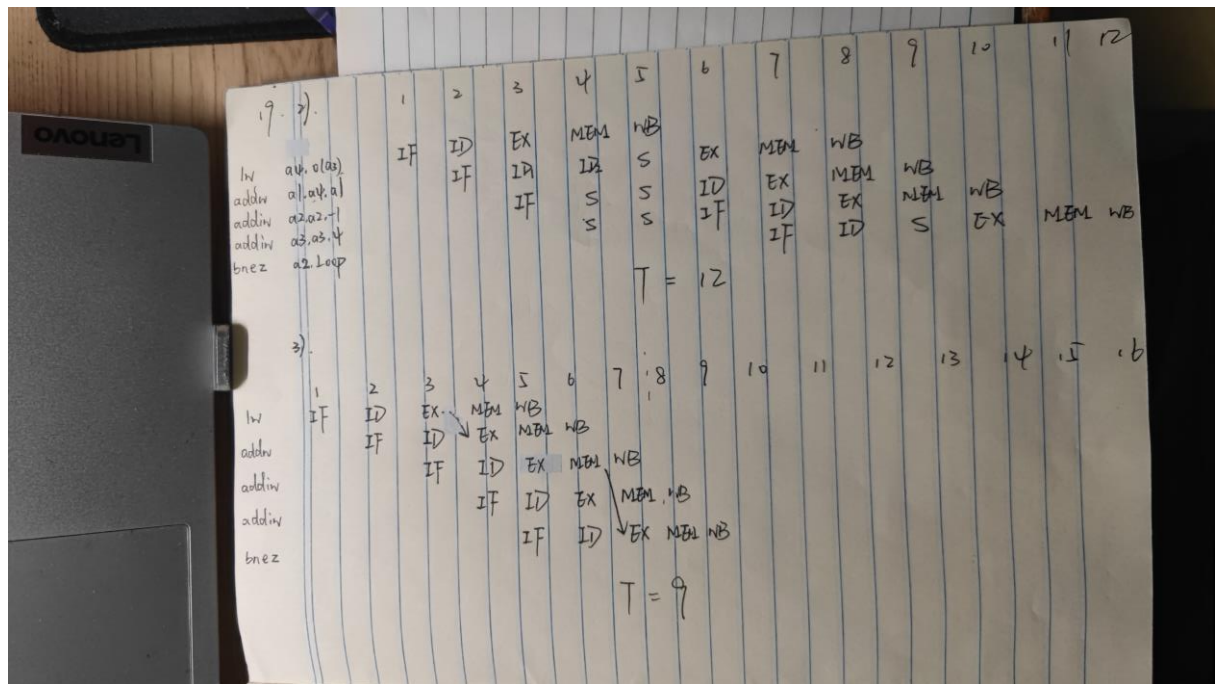 Lenovo
19. 2). 1 2 3 4 5 6 7 8 9 10 11 12
lw a4, 0(a3) IF ID EX MEM WB
addw a1, a4, a1 IF ID ID S EX MEM WB
addiw a2, a2, -1 IF S S ID EX MEM WB
addiw a3, a3, 4 S S IF ID EX MEM WB
bnez a2, Loop IF ID S EX MEM WB
T = 12
3).
1 2 3 4 5 6 7 8 9 10 11 12 13 14 15 16
lw IF ID EX MEM WB
addw IF ID EX MEM WB
addiw IF ID EX MEM WB
addiw IF ID EX MEM WB
bnez IF ID EX MEM WB
T = 9